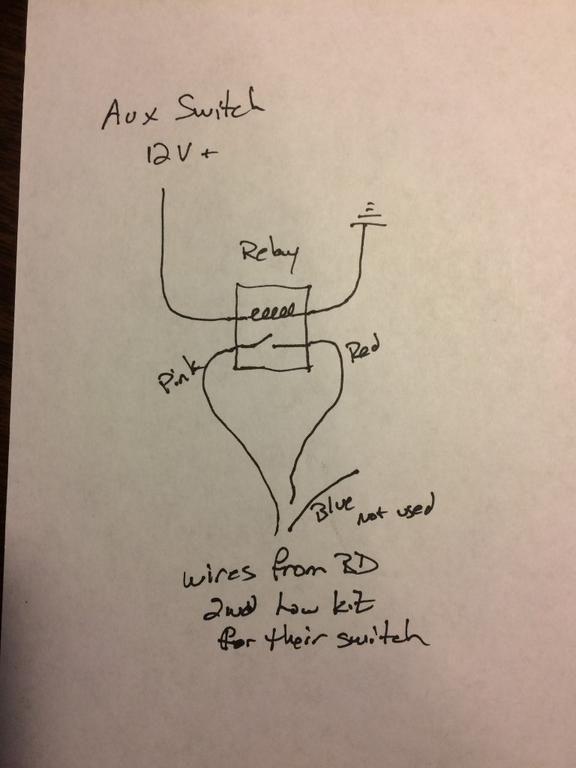 Aux Switch
12V +
Relay
Pink
Red
Blue not used
wires from BD
2nd Low kit
for their switch